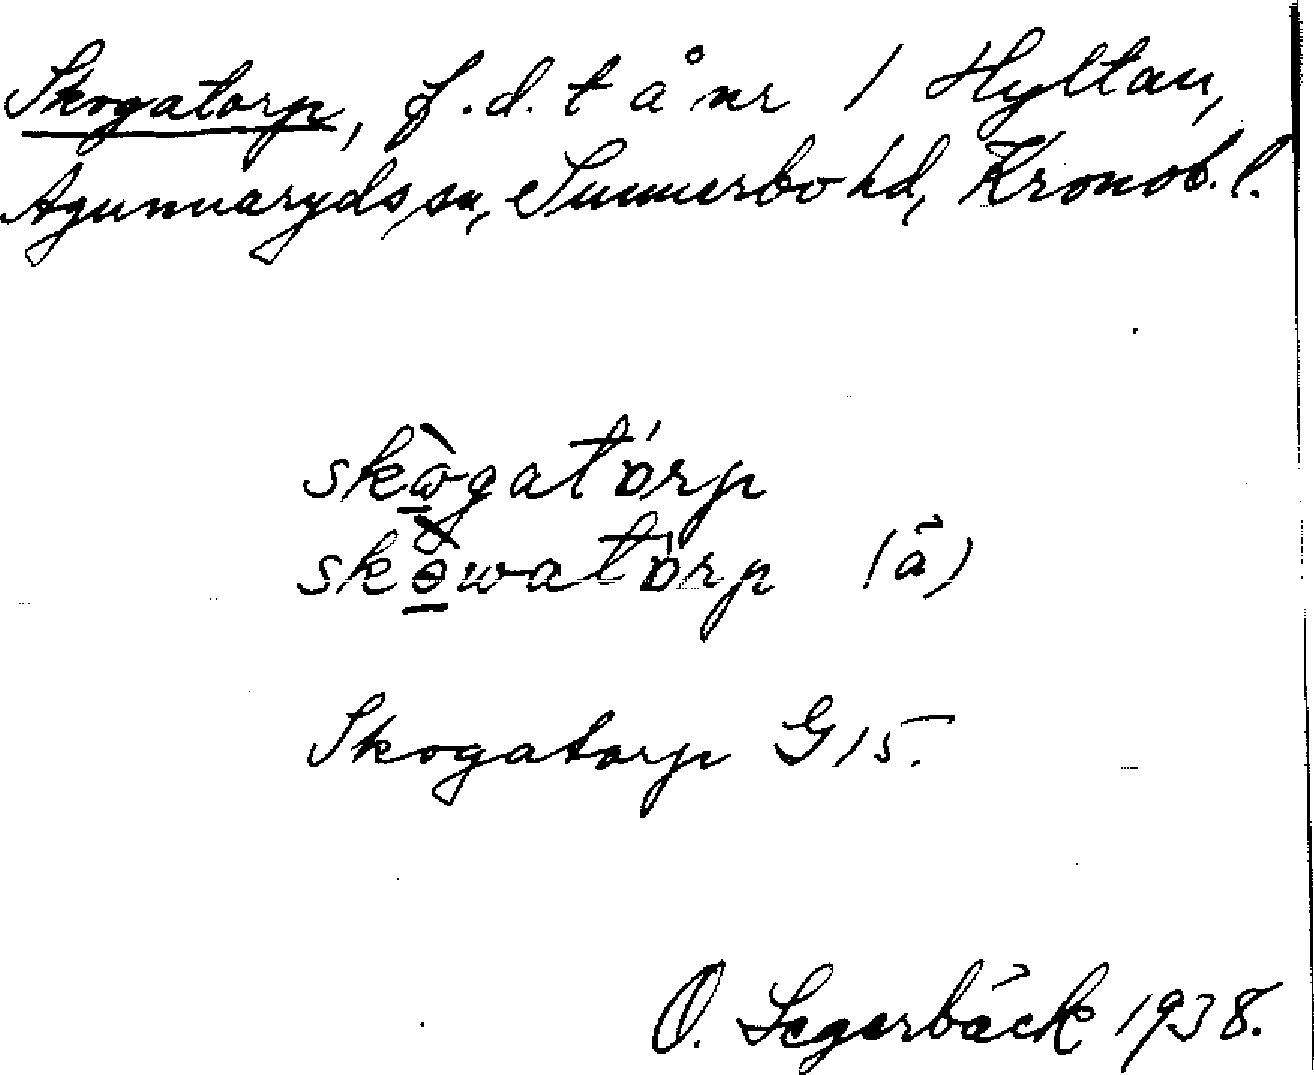 Skogatorp, f.d. t å nr 1 Hyltan,
Agunnaryds sn, Sunnerbo hd, Kronob. l.
skògatórp
skòwatòrp (ā)
Skogatorp G15.
O. Segerbäck 1938.